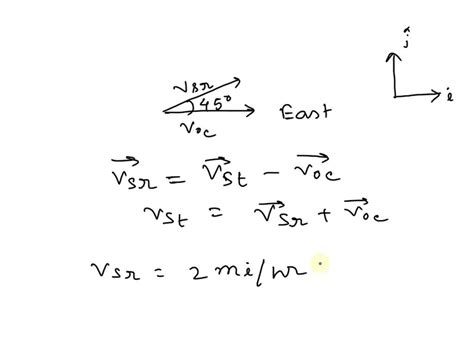 ĵ
î
V_sr
45°
V_oc
East
→V_sr = →V_st − →V_oc
V_st = →V_sr + →V_oc
V_sr = 2 mi/hr